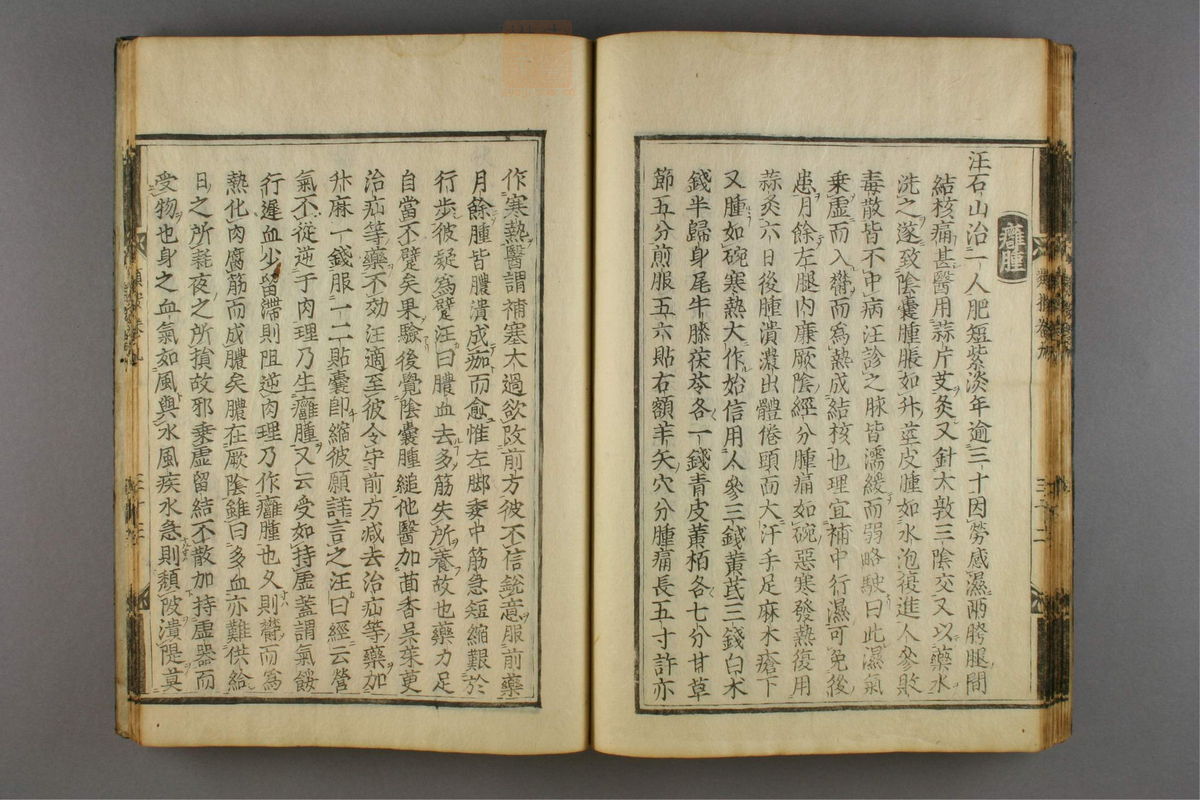 癰腫
汪石山治一人肥短紫淡年逾三十因勞感濕兩胯腿間
結核痛甚醫用蒜片艾灸又針大敦三陰交又以藥水
洗之遂致陰囊腫脹如升莖皮腫如水泡復進人參敗
毒散皆不中病汪診之脉皆濡緩而弱略駛曰此濕氣
乘虛而入欝而為熱成結核也理宜補中行濕可免後
患月餘左腿內廉厥陰經分腫痛如碗惡寒發熱復用
蒜灸六日後腫潰濃出體倦頭面大汗手足麻木瘡下
又腫如碗寒熱大作始信用人參三錢黃芪三錢白术
錢半歸身尾牛膝茯苓各一錢青皮黃栢各七分甘草
節五分煎服五六貼右額羊矢穴分腫痛長五寸許亦
作寒熱醫謂補塞太過欲改前方彼不信銳意服前藥
月餘腫皆膿潰成痂而愈惟左脚委中筋急短縮艱於
行步彼疑為躄汪曰膿血去多筋失所養故也藥力足
自當不躄矣果驗後覺陰囊腫縋他醫加茴香吳茱萸
治疝等藥不効汪適至彼令守前方減去治疝等藥加
升麻一錢服一二貼囊卽縮彼願詳言之汪曰經云營
氣不從逆于肉理乃生癰腫又云受如持虛蓋謂氣餒
行遲血少留滯則阻逆肉理乃作癰腫也久則欝而為
熱化肉腐筋而成膿矣膿在厥陰雖曰多血亦難供給
日之所耗夜之所損故邪乘虛留結不散加持虛器而
受物也身之血氣如風與水風疾水急則頹陂潰隄莫